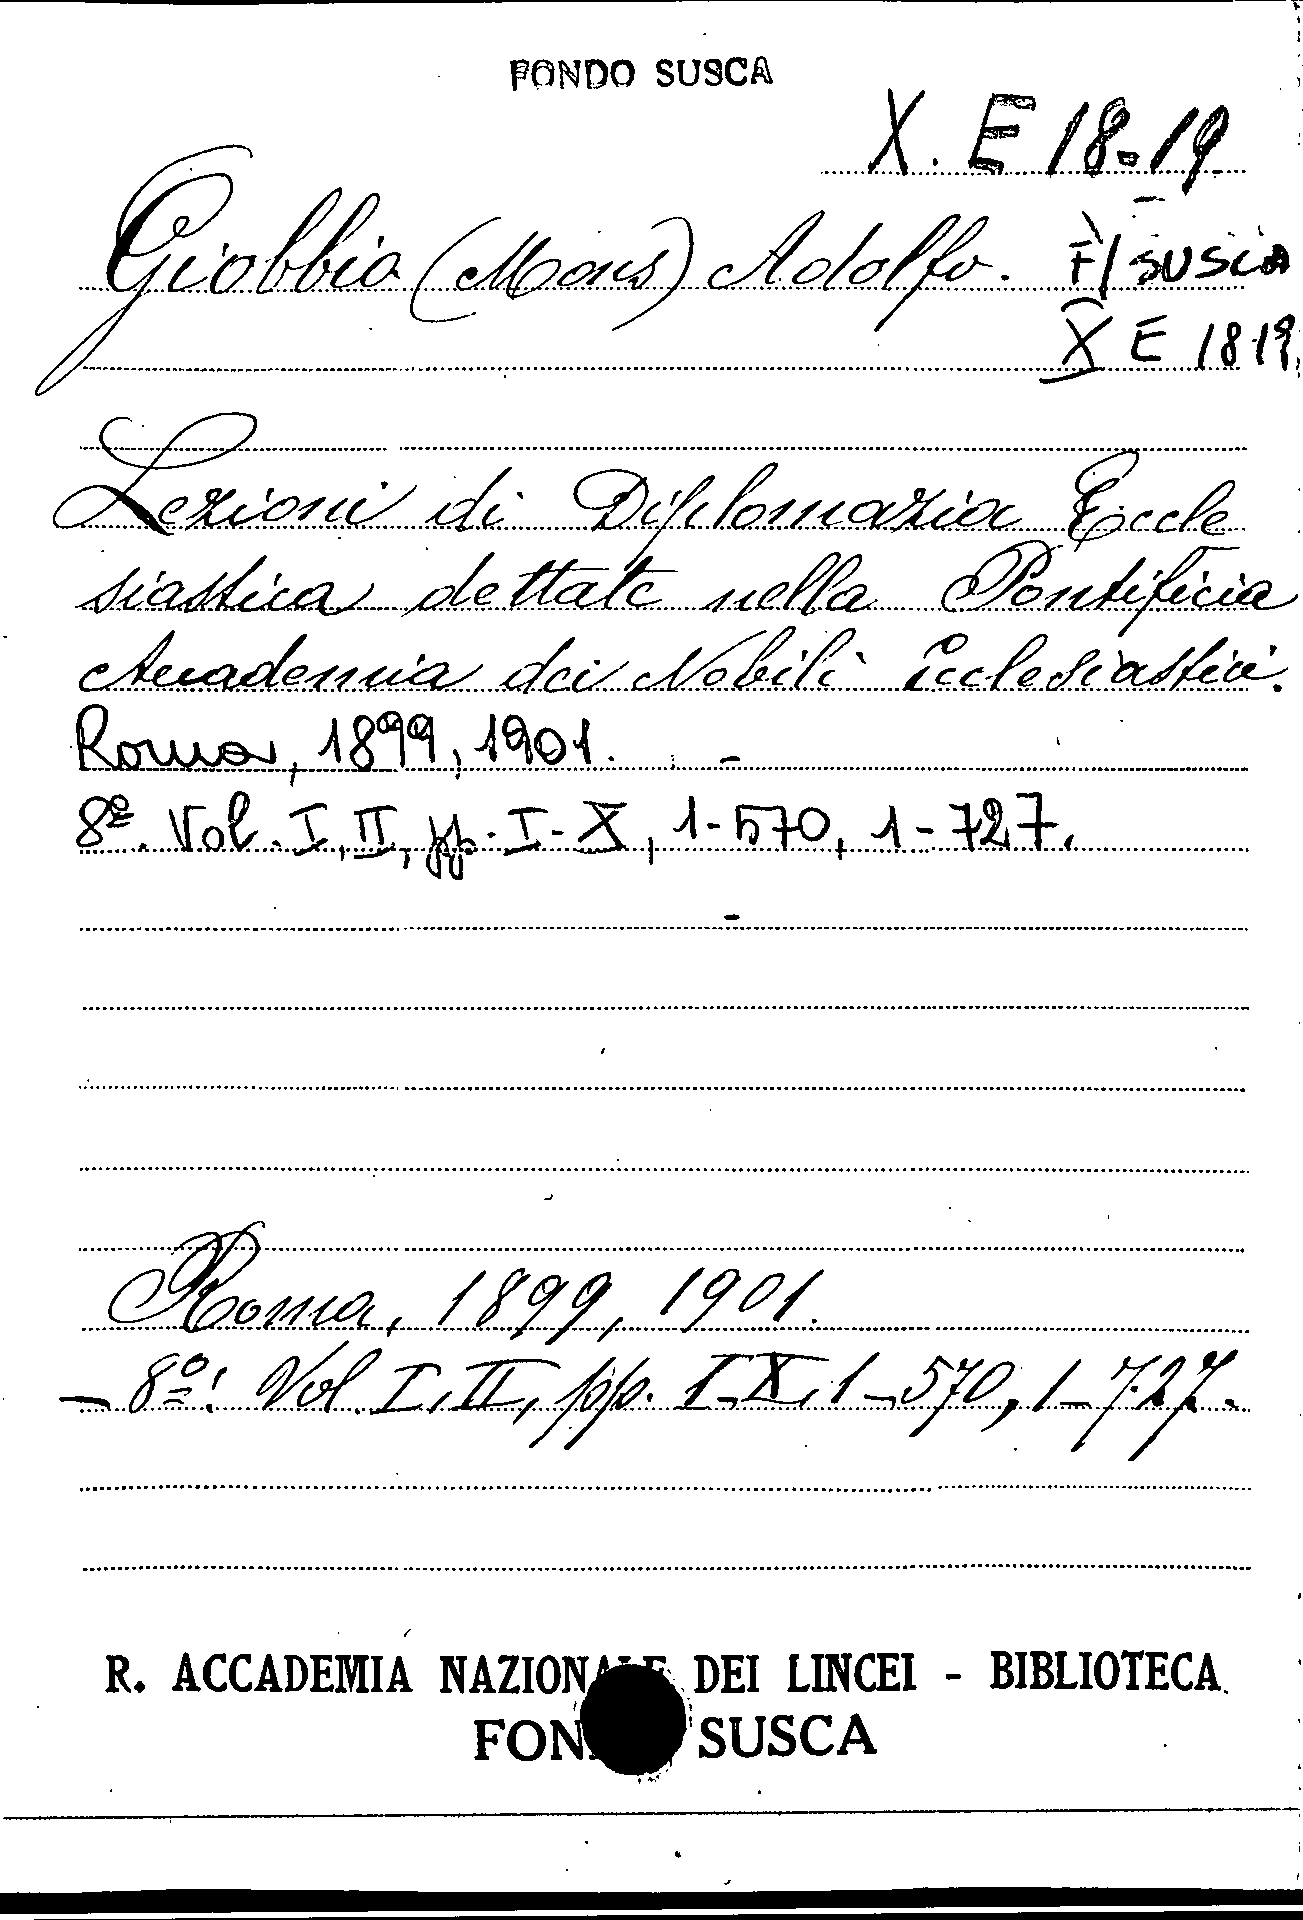 FONDO SUSCA
X. E 18-19
Giobbio (Mons) Adolfo. F/SUSCA
X E 18-19
Lezioni di Diplomazia Eccle
siastica dettate nella Pontificia
Accademia dei Nobili Ecclesiastici.
Roma, 1899, 1901.
8º. Vol. I, II, pp. I-X, 1-570, 1-727.
Roma, 1899, 1901.
8º. Vol. I, II, pp. I-X, 1-570, 1-727.
R. ACCADEMIA NAZIONALE DEI LINCEI - BIBLIOTECA
FONDO SUSCA